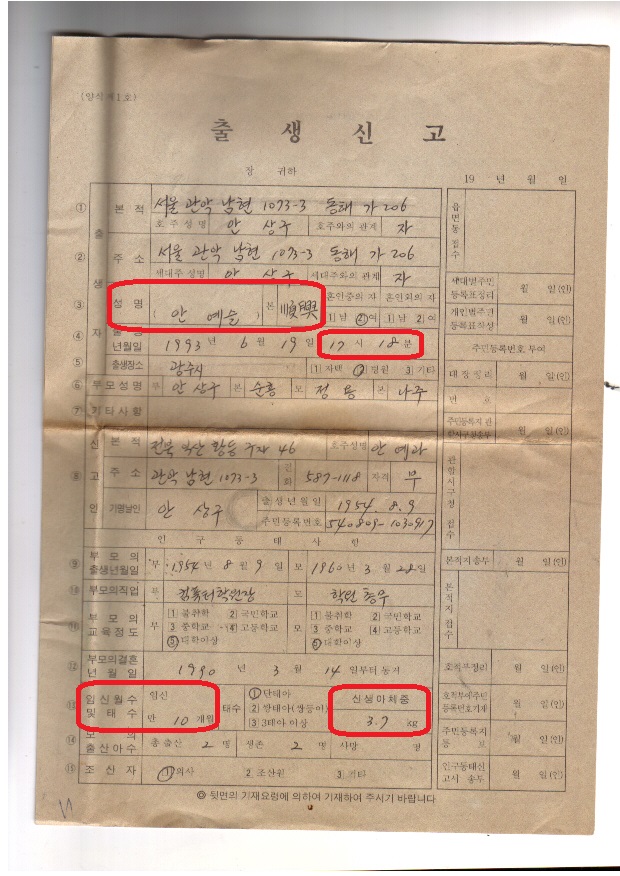 (양식제1호)
출 생 신 고
장 귀하
19 년 월 일
① 본적 서울 관악 남현 1073-3 동해 가 206
호주성명 안상구 호주와의 관계 자
② 주소 서울 관악 남현 1073-3 동해 가 206
세대주성명 안상구 세대주와의 관계 자
③ 성명 (안 예슬) 본 順興 혼인중의 자 혼인외의 자
1 남 ② 여 1 남 2 여
④ 년월일 1993 년 6 월 19 일 17 시 18 분
⑤ 출생장소 광주시 1 자택 ② 병원 3 기타
⑥ 부모성명 부 안상구 본 순흥 모 정 본 나주
⑦ 기타사항
본적 전북 익산 황등 46 호주성명 안
⑧ 주소 관악 남현 1073-3 전화 587-1118 자격 부
기명날인 안 상구 출생년월일 1954.8.9
주민등록번호 540809-1030917
인 구 동 태 사 항
⑨ 부모의 출생년월일 부 1954 년 8 월 9 일 모 1960 년 3 월 28 일
⑩ 부모의직업 부 컴퓨터학원장 모 학원
⑪ 부모의 교육정도 부 1 불취학 2 국민학교 모 1 불취학 2 국민학교
3 중학교 4 고등학교 3 중학교 4 고등학교
⑤ 대학이상 ⑤ 대학이상
⑫ 부모의결혼 년월일 1990 년 3 월 14 일부터 동거
⑬ 임신월수 및 태수 임신 만 10 개월 태수 ① 단태아
2 쌍태아(쌍둥이)
3 3태아 이상
신생아체중 3.7 kg
⑭ 모의 출산아수 총출산 2 명 생존 2 명 사망 명
⑮ 조산자 ① 의사 2 조산원 3 기타
◎ 뒷면의 기재요령에 의하여 기재하여 주시기 바랍니다
읍면동 접수
세대별주민등록표정리 월 일(인)
개인별주민등록표작성 월 일(인)
주민등록번호 부여
대장정리 월 일(인)
번 호
월 일(인)
관할시구청 접수
본적지송부 월 일(인)
본적지 접수
호적부정리 월 일(인)
호적부에주민등록번호기재 월 일(인)
주민등록지 통보 월 일(인)
인구동태신고서 송부 월 일(인)